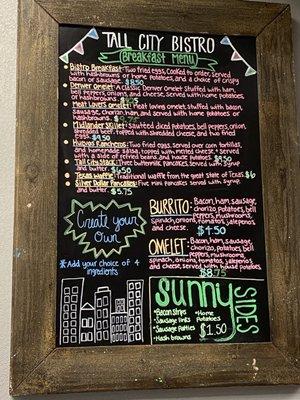 TALL CITY BISTRO
Breakfast Menu
Bistro Breakfast: Two fried eggs, cooked to order, served
with hashbrowns or home potatoes, and a choice of crispy
Denver Omelet: A classic Denver Omelet stuffed with ham,
bell peppers, onions, and cheese, served with home potatoes,
or hashbrowns.
Meat Lovers Omelet: Meat loving omelet, stuffed with bacon,
sausage, chorizo, ham, and served with home potatoes or
hashbrowns.
Midlander Skillet: sautéed diced potatoes, bell peppers, onion,
shredded beef, topped with shredded cheese, and two fried
eggs. $9.50
Huevos Rancheros: Two fried eggs, served over corn tortillas,
and homemade salsa, topped with melted cheese, served
with a side of refried beans and home potatoes. $9.50
Tall City Stack: Three buttermilk pancakes served with syrup
and butter. $6.50
Texas Waffle: Traditional waffle from the great state of Texas. $6
Silver Dollar Pancakes: Five mini pancakes served with syrup
and butter. $5.75
Create your
Own!
*Add your choice of 4
ingredients
BURRITO: Bacon, ham, sausage,
chorizo, potatoes, bell
peppers, mushrooms,
spinach, onions, tomatoes, jalapenos,
and cheese. $4.50
OMELET: Bacon, ham, sausage,
chorizo, potatoes, bell
peppers, mushrooms,
spinach, onions, tomatoes, jalapenos,
and cheese, served with home potatoes
$8.75
Sunny SIDES
•Bacon strips •Home
•Sausage links Potatoes
•Sausage patties $1.50
•Hash browns